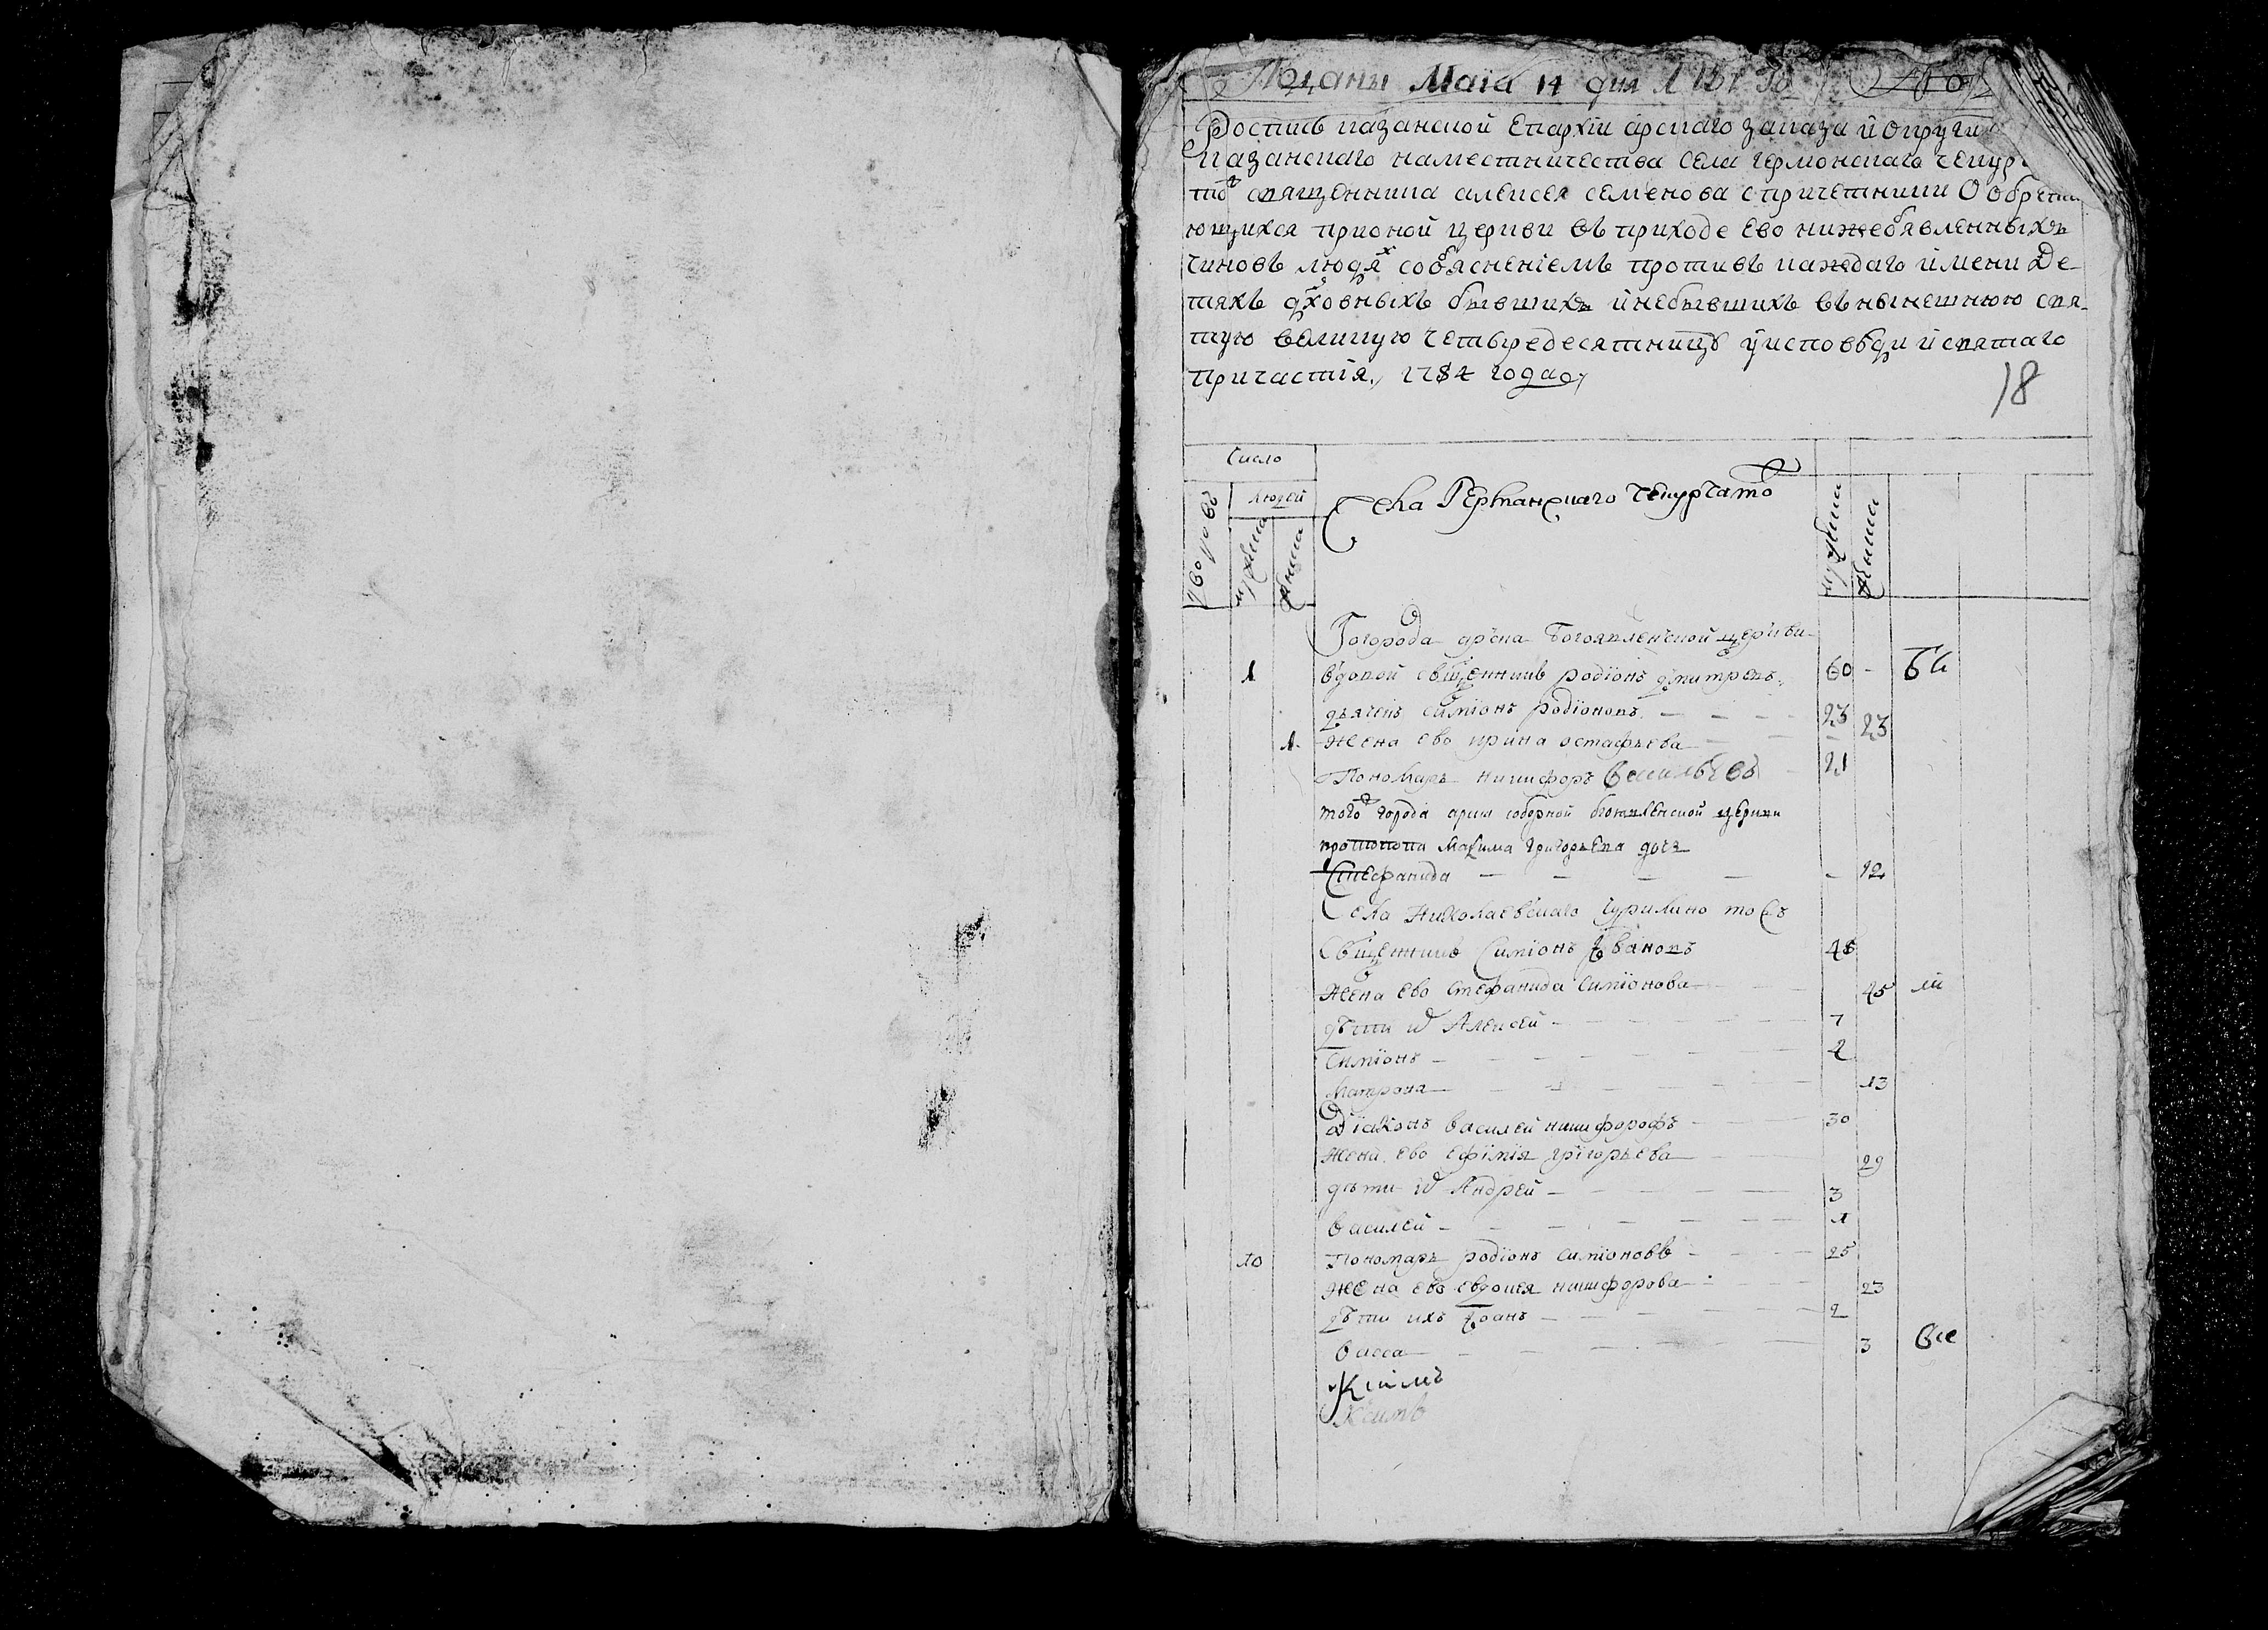 Маїа 14 дня
Роспись казанской Епархїи арскаго заказа и округи
казанскаго наместничества села германскаго чепурч
тоⷤ священника алексея семенова спричетники О обрета
ющихся прионой церкви въ приходе Ево нижеобявленныхъ
чиновъ людяⷯ собясненїемъ противъ каждаго имени Де
тяхъ дховныхъ бывшихъ инебывшихъ внынешнюю свя
тую великую Четыредесятницѣ у исповѣди исвятаго
Причастїя, 1784 года
18
Число
людей
дворовъ
мужеска
женска
Села Германскаго чепурчато
мужеска
женска
Города арска Богоявленской церкви
1 вдовой священникъ родїонъ дмитревъ 60
дьячекъ симїонъ родїоновъ 23 23
1 Жена ево ирина остафьева
Пономарь никифоръ василбевъ 21
того города арска соборной богоявленской церкви
протопопа Маѯима Григорьева дочь
Стефанида 12
Села Николаевскаго чурилино тоѯъ
Священникъ Симїонъ Ивановъ 48
Жена Ево Стефанида Симїонова 45
дѣти Алексей 7
Симїонъ 2
Матрона 13
Дїаконъ василей никифорофъ 30
Жена Ево Ефїмїя грїгорьева 29
дѣти Андрей 3
василей 1
10 Пономарь родїонъ симїоновъ 25
Жена Ево Евдокея никифорова 23
дѣти ихъ Іоанъ 2
васса 3 все